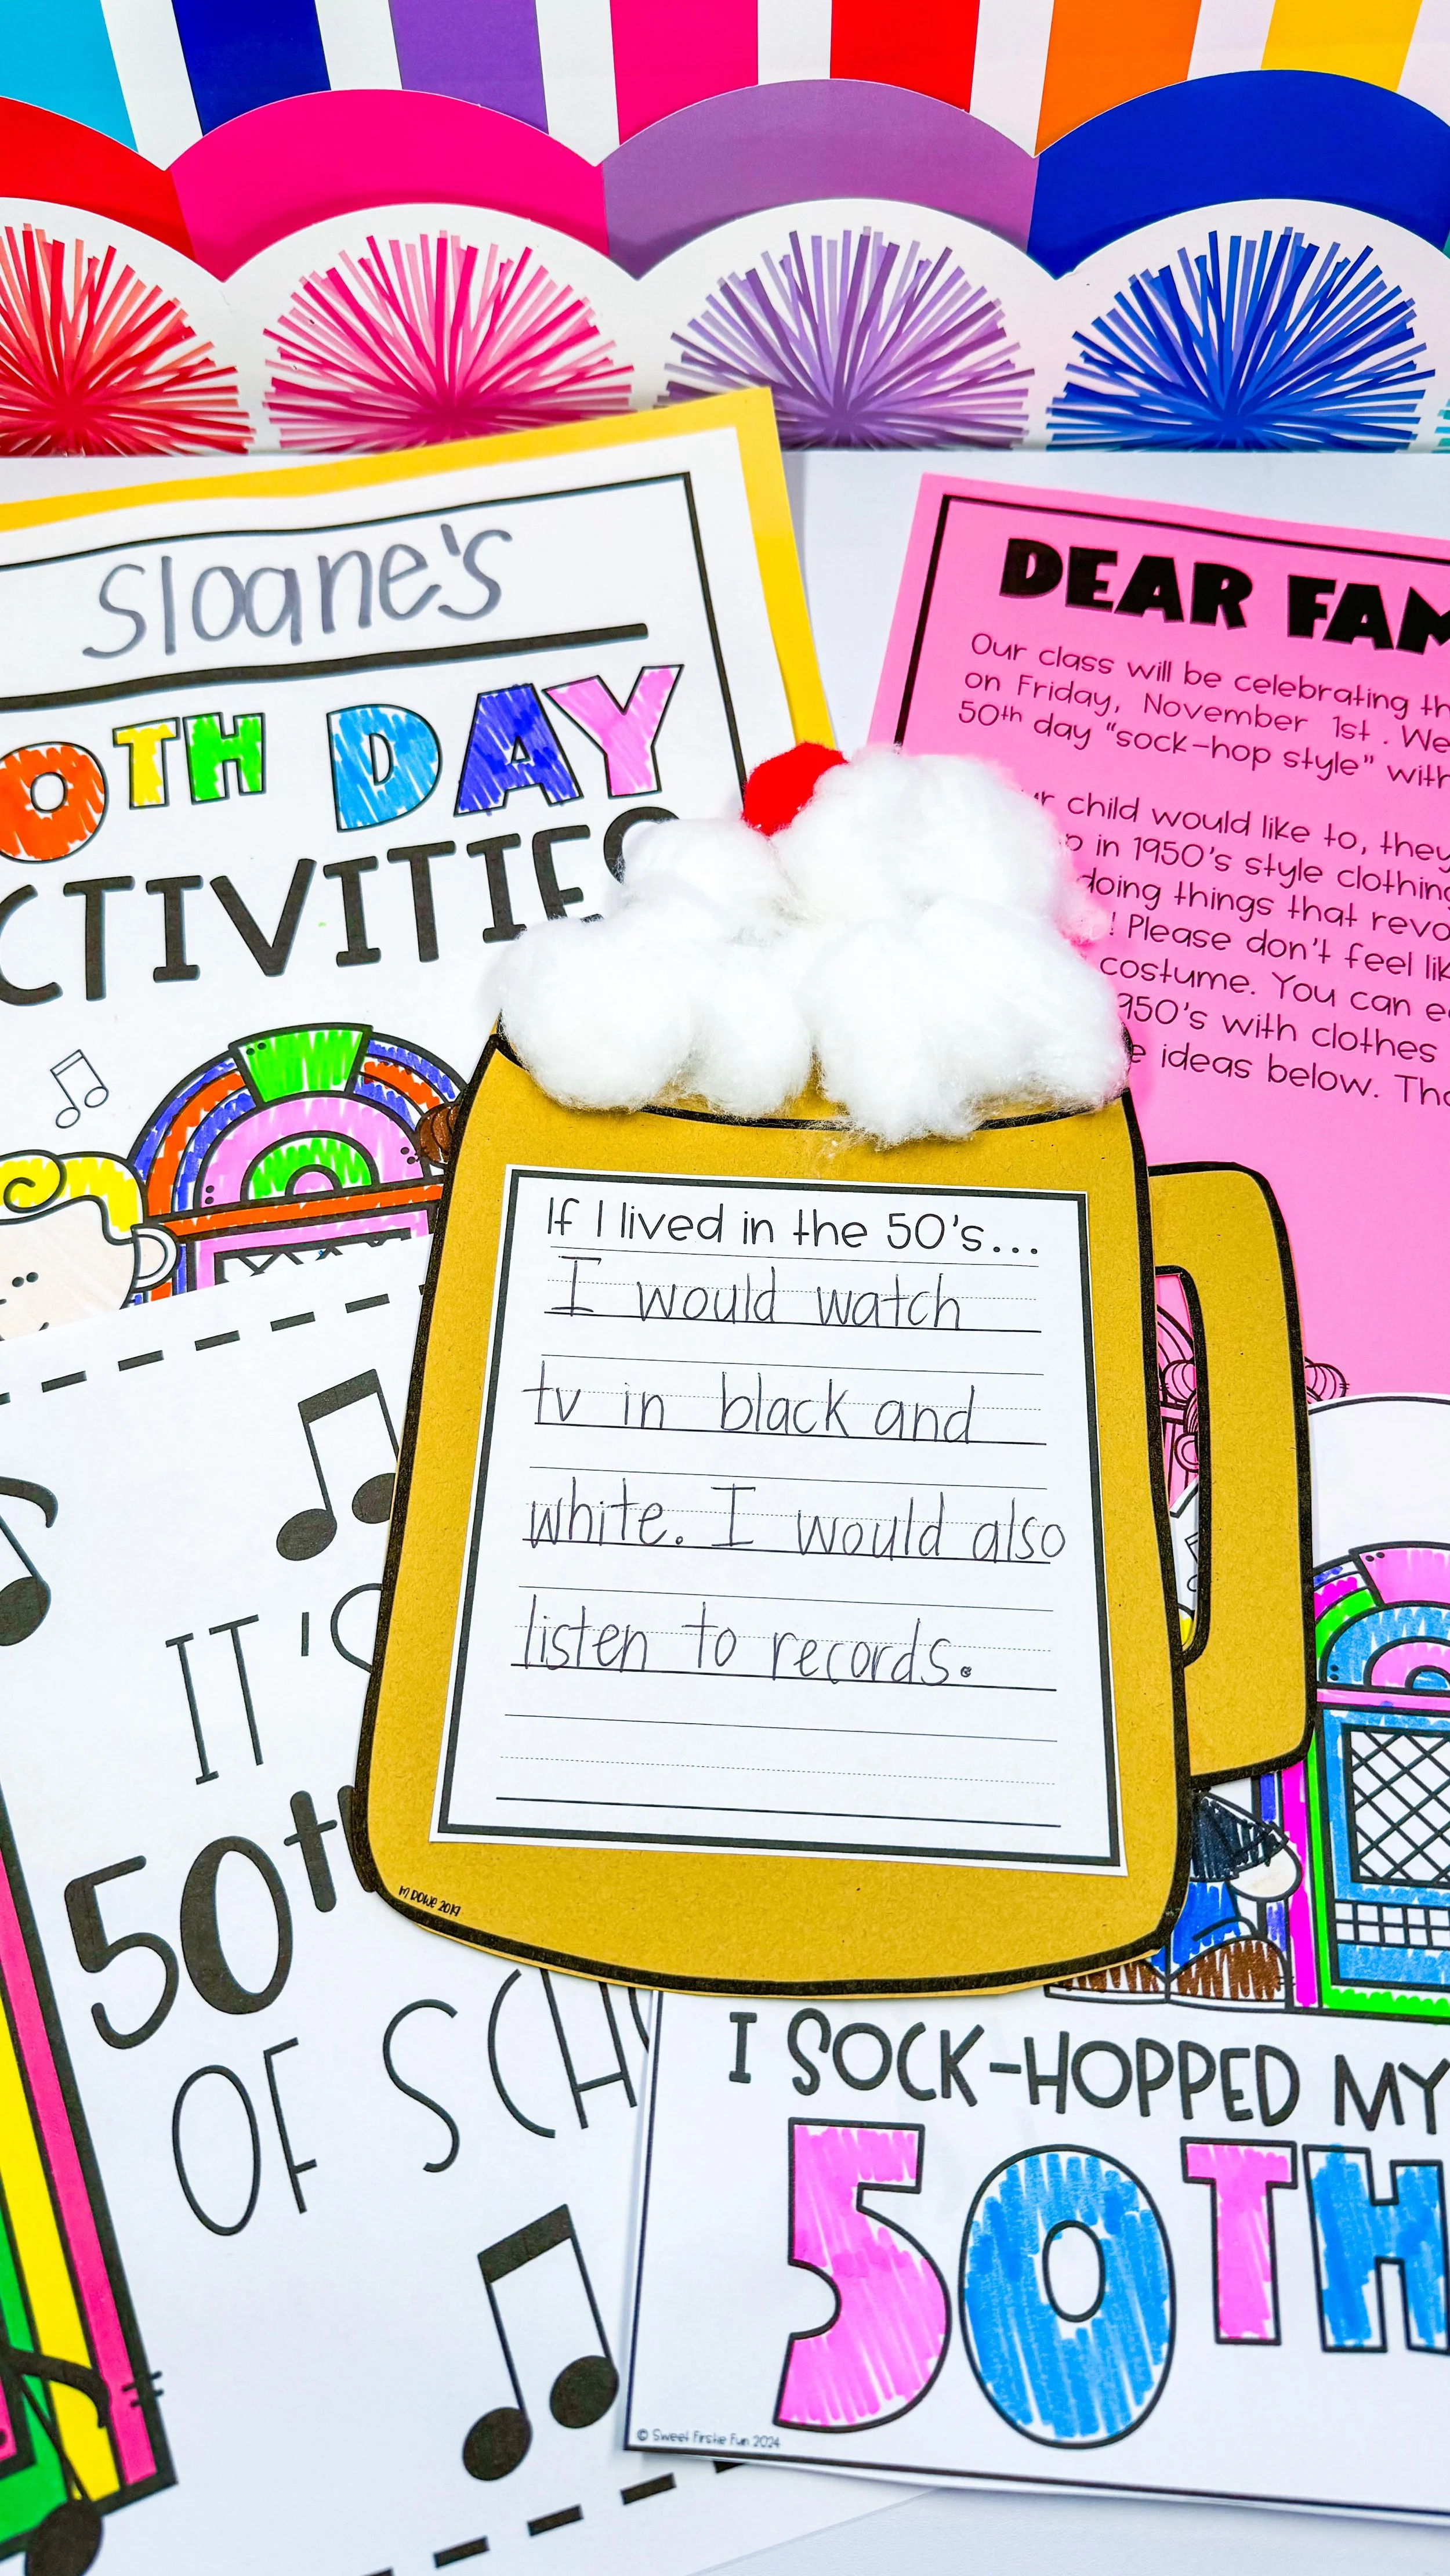 Sloane's
0TH DAY
CTIVITIES
DEAR FAM
Our class will be celebrating th
on Friday, November 1st. We
50th day "sock-hop style" with
ur child would like to, they
in 1950's style clothing
doing things that revo
! Please don't feel lik
costume. You can e
950's with clothes
e ideas below. Tha
If I lived in the 50's...
I would watch
tv in black and
white. I would also
listen to records.
M DOWE 2019
IT'S
50th
OF SCHO
I SOCK-HOPPED MY
50TH
© Sweet Firstie Fun 2024